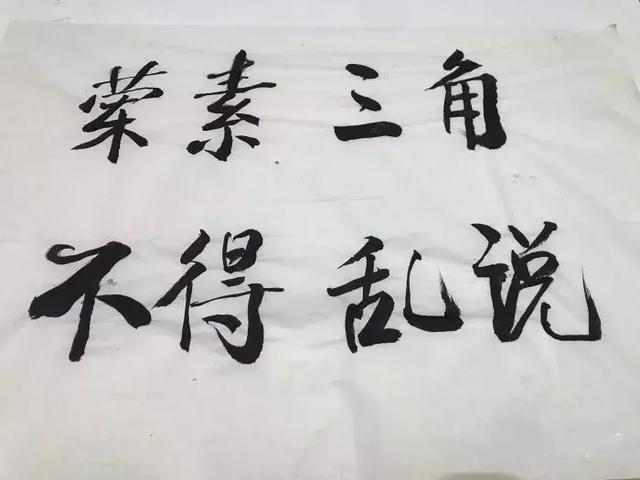 荣素三角
不得乱说